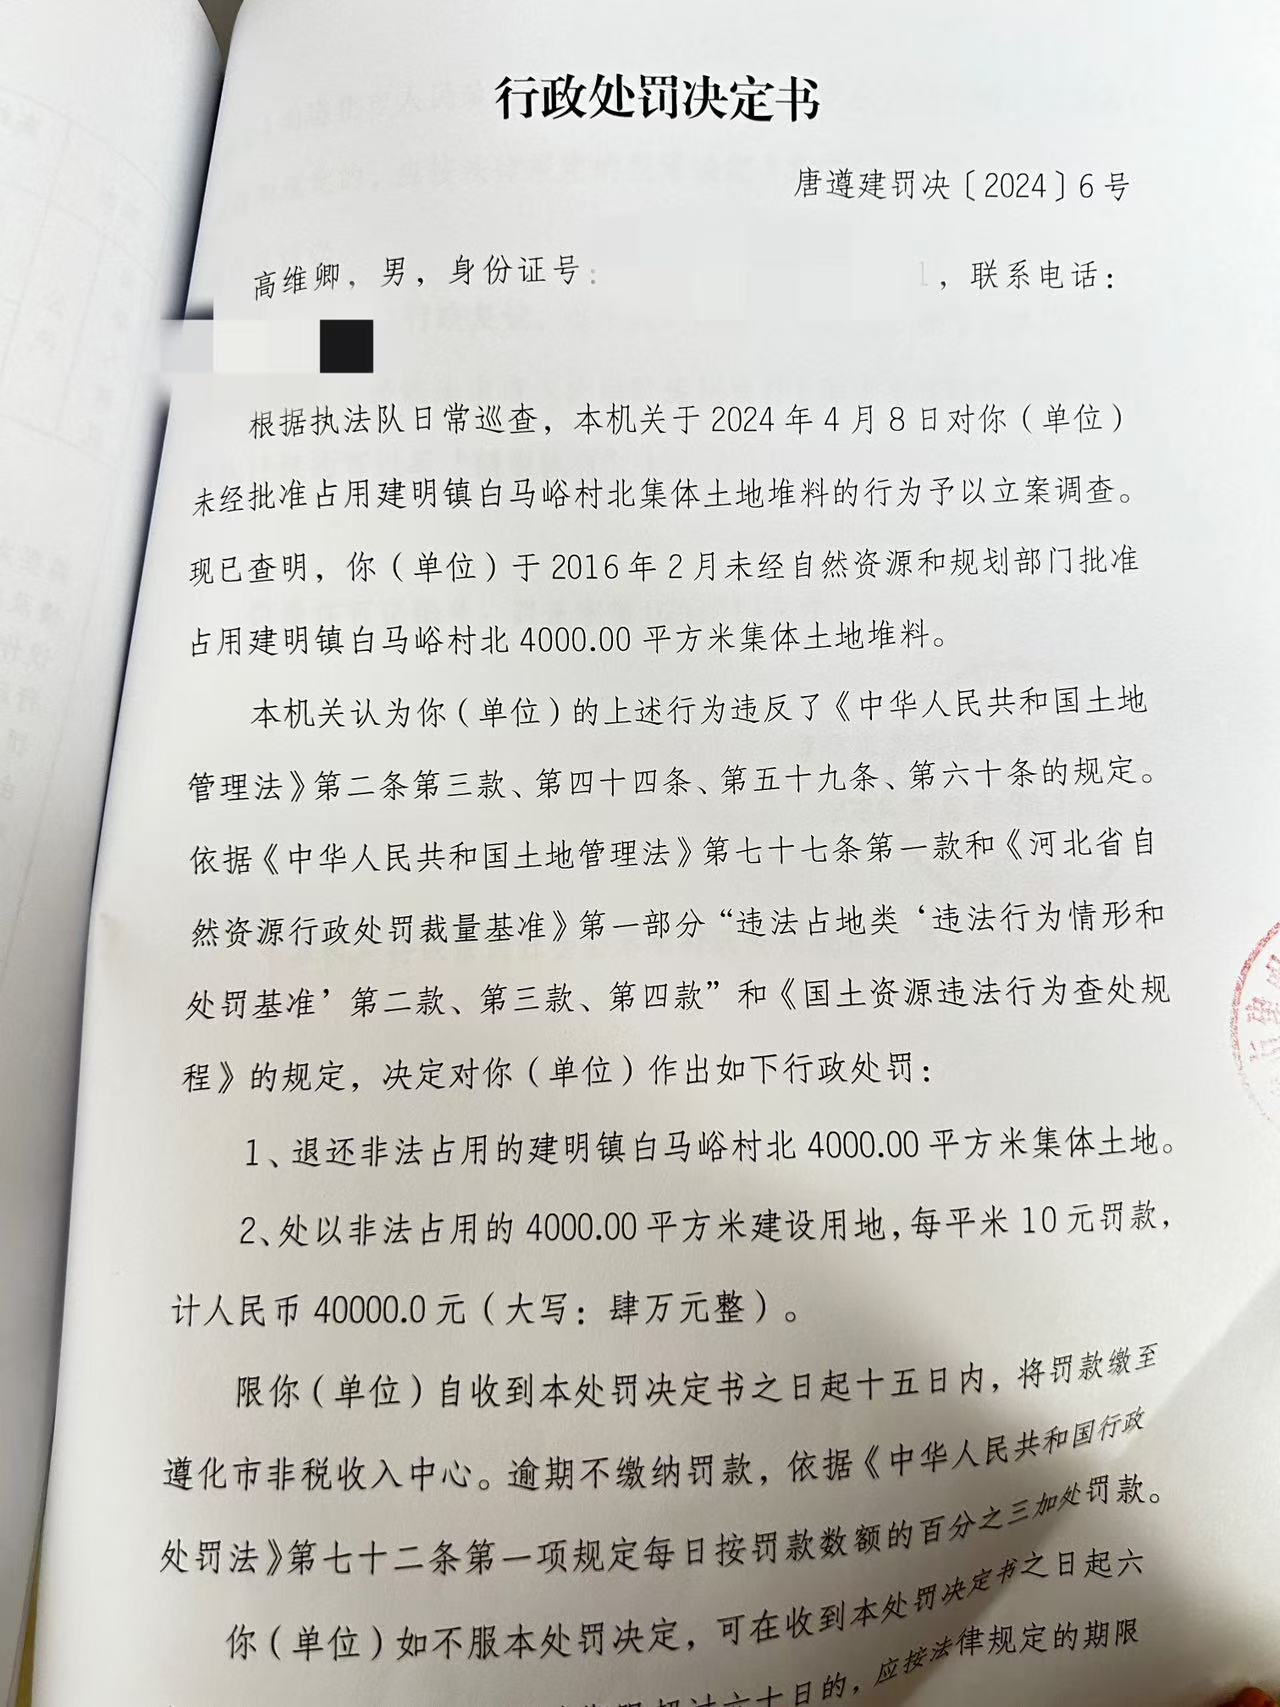 行政处罚决定书
唐遵建罚决〔2024〕6号
高维卿，男，身份证号： ，联系电话：
根据执法队日常巡查，本机关于2024年4月8日对你（单位）
未经批准占用建明镇白马峪村北集体土地堆料的行为予以立案调查。
现已查明，你（单位）于2016年2月未经自然资源和规划部门批准
占用建明镇白马峪村北4000.00平方米集体土地堆料。
本机关认为你（单位）的上述行为违反了《中华人民共和国土地
管理法》第二条第三款、第四十四条、第五十九条、第六十条的规定。
依据《中华人民共和国土地管理法》第七十七条第一款和《河北省自
然资源行政处罚裁量基准》第一部分“违法占地类‘违法行为情形和
处罚基准’第二款、第三款、第四款”和《国土资源违法行为查处规
程》的规定，决定对你（单位）作出如下行政处罚：
1、退还非法占用的建明镇白马峪村北4000.00平方米集体土地。
2、处以非法占用的4000.00平方米建设用地，每平米10元罚款，
计人民币40000.0元（大写：肆万元整）。
限你（单位）自收到本处罚决定书之日起十五日内，将罚款缴至
遵化市非税收入中心。逾期不缴纳罚款，依据《中华人民共和国行政
处罚法》第七十二条第一项规定每日按罚款数额的百分之三加处罚款。
你（单位）如不服本处罚决定，可在收到本处罚决定书之日起六
六十日的，应按法律规定的期限